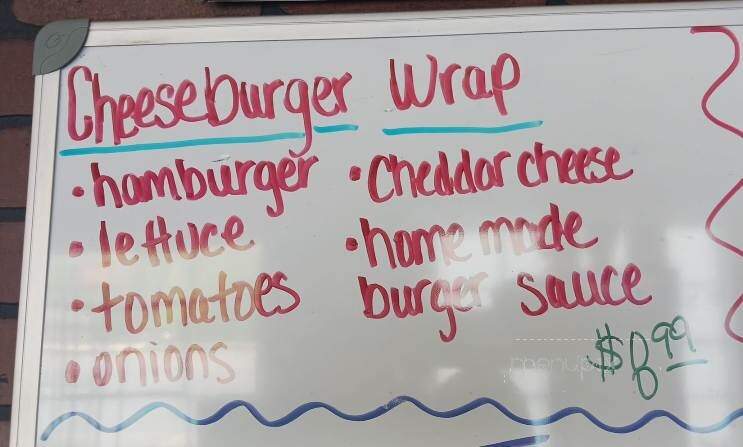 Cheeseburger Wrap
• hamburger
• lettuce
• tomatoes
• onions
• Cheddar cheese
• home made
burger sauce
$8.99